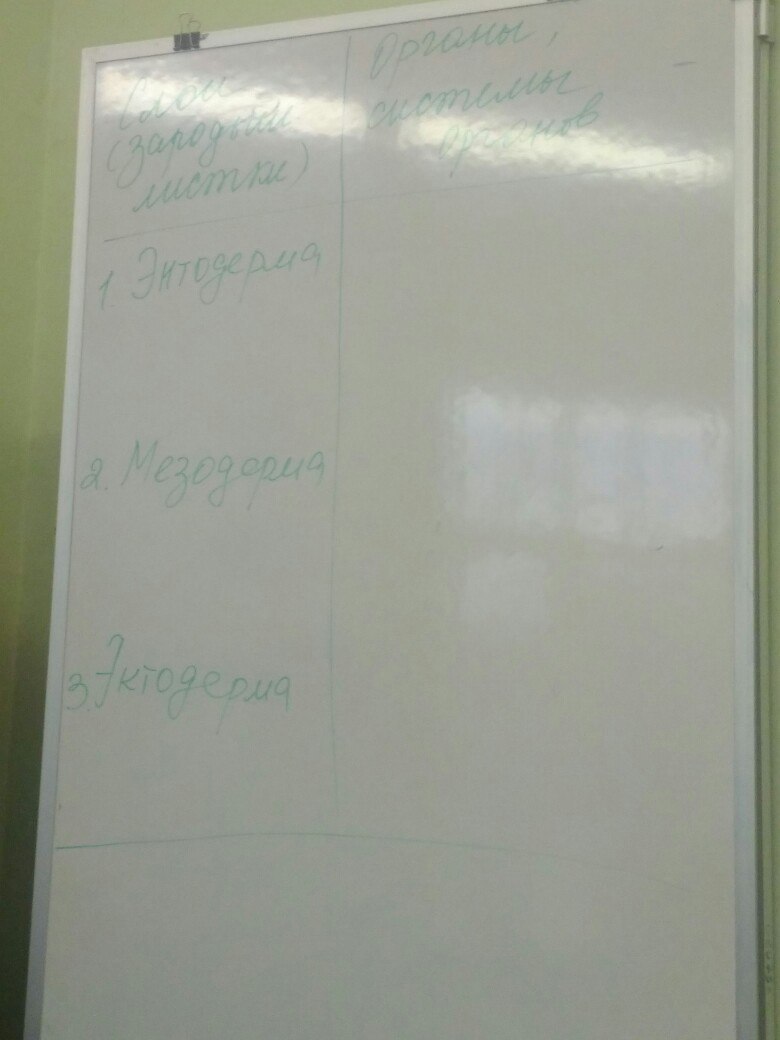 Слои
(зародыши
листки)
Органы,
системы
органов
1. Энтодерма
2. Мезодерма
3. Эктодерма